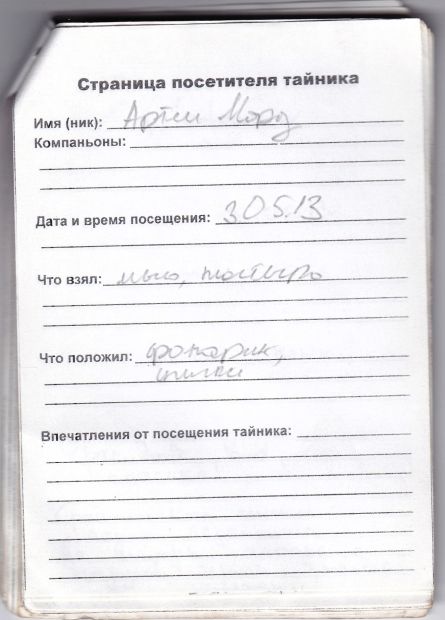 Страница посетителя тайника
Имя (ник): Артем Мороз
Компаньоны:
Дата и время посещения: 30.5.13
Что взял: мыло,
Что положил: фонарик,
Впечатления от посещения тайника: